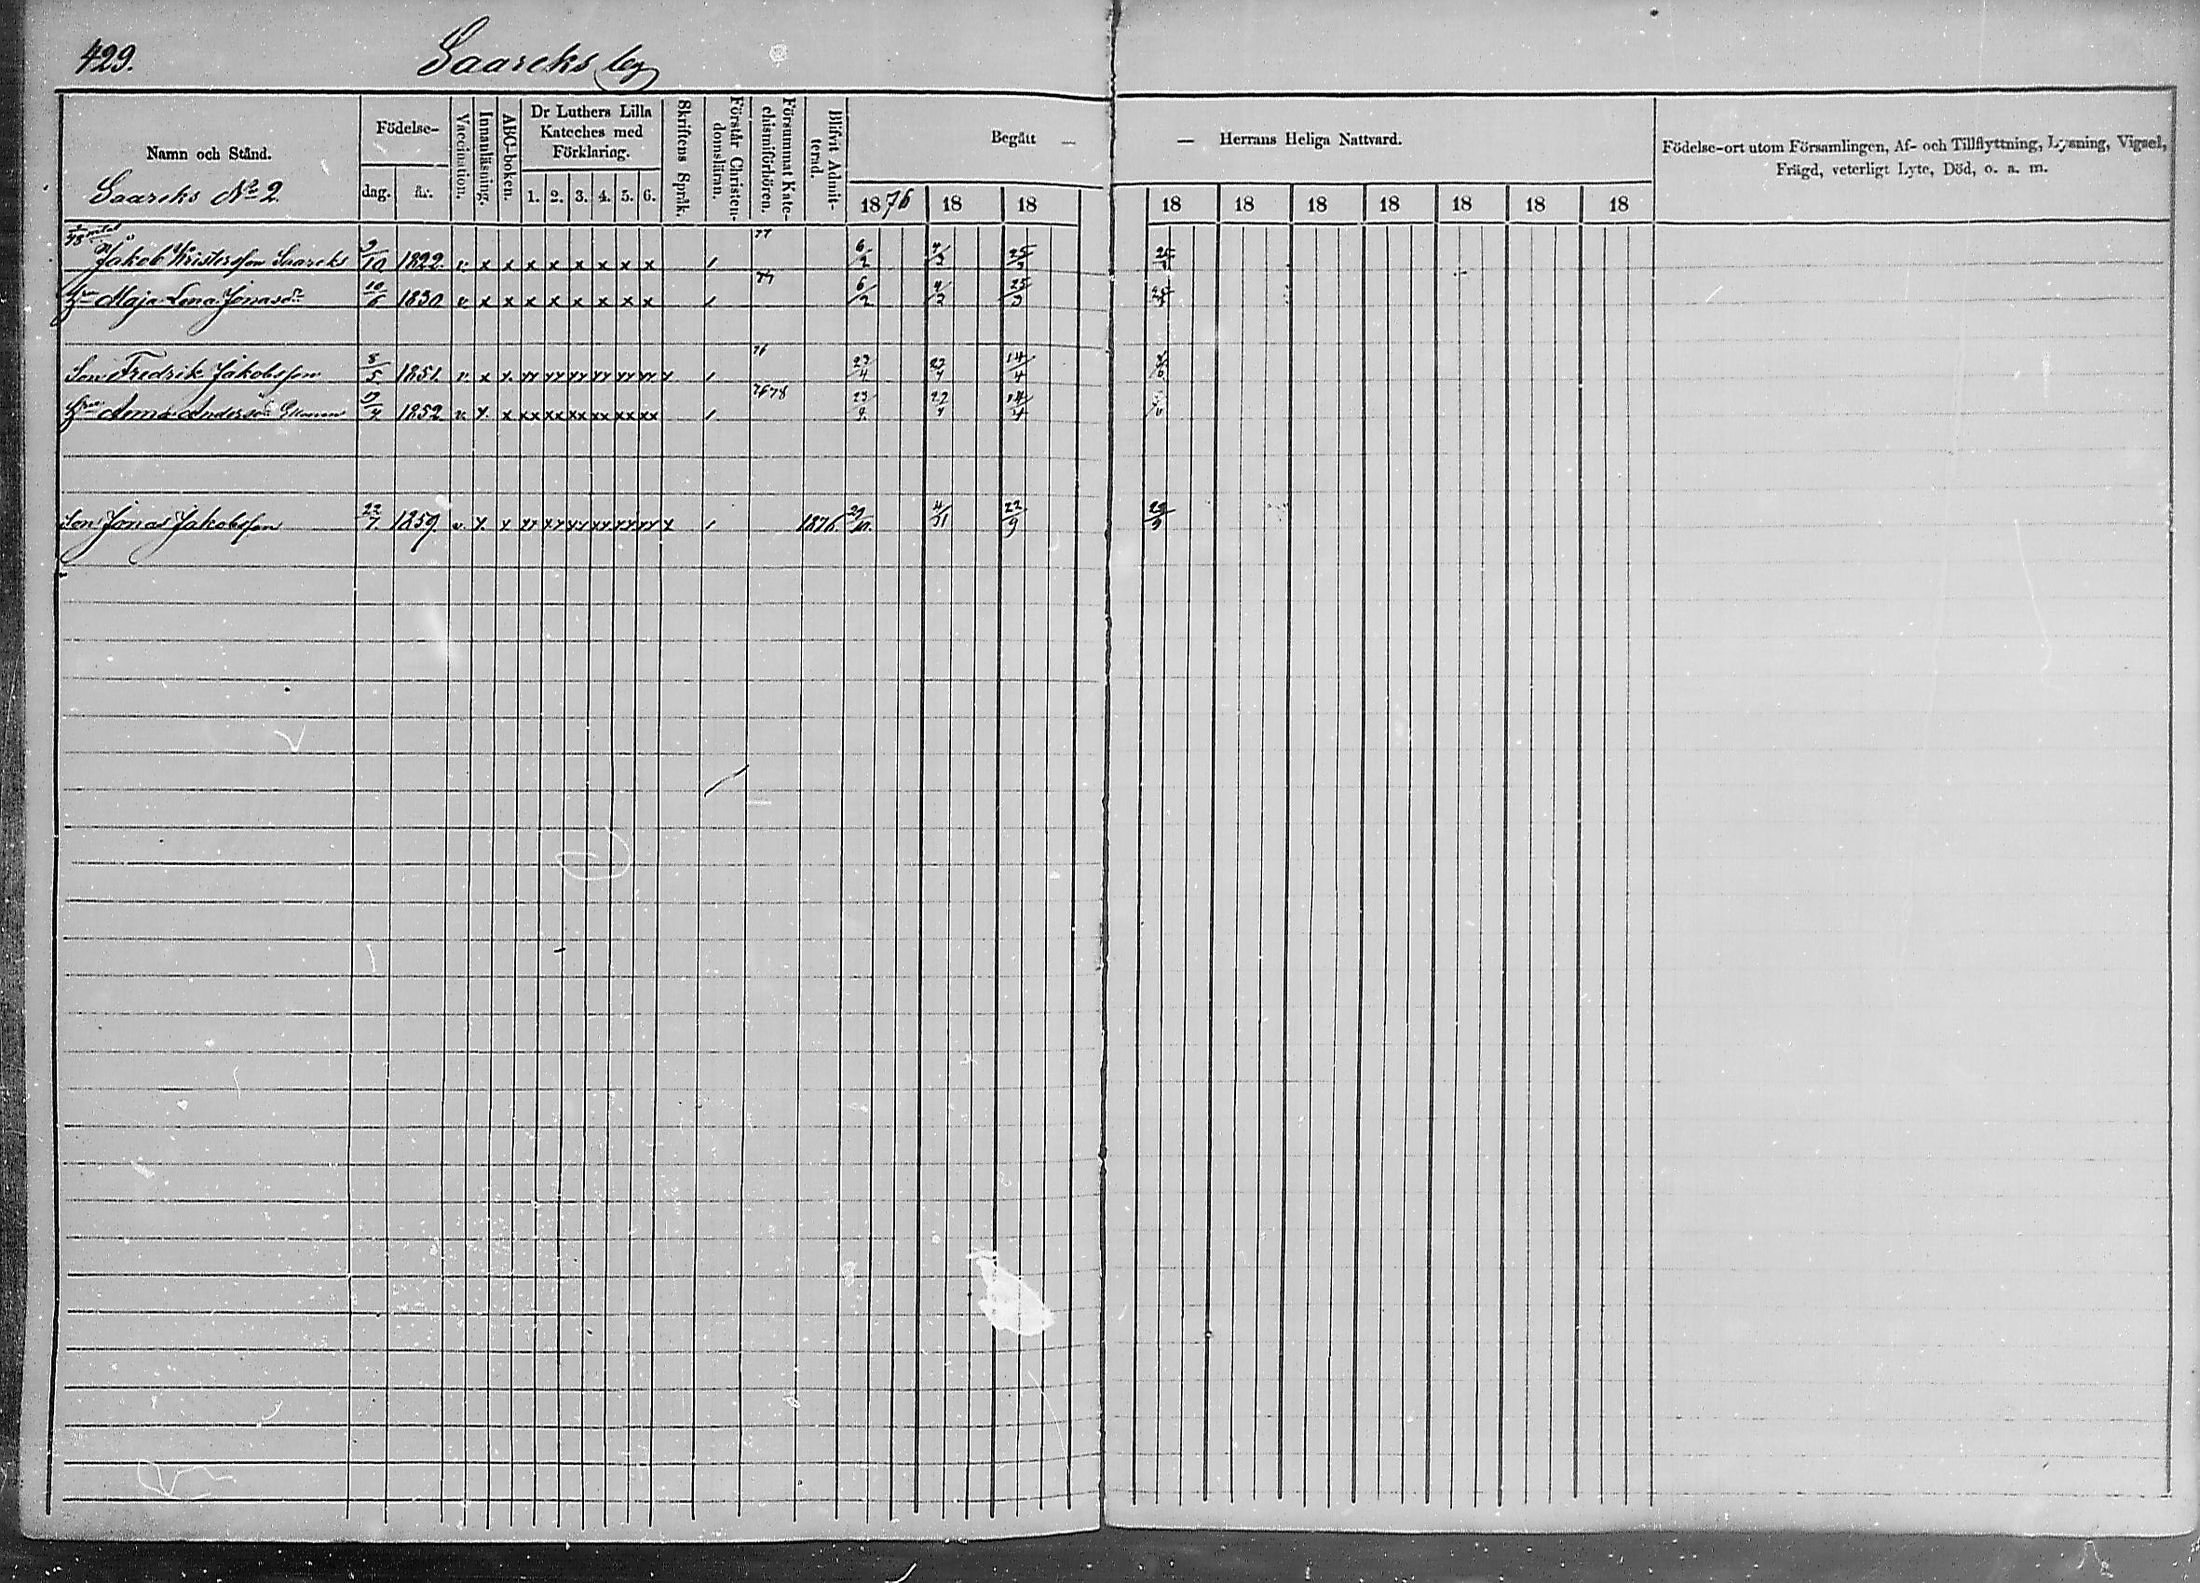 429.
Saareks by
Namn och Stånd.
Saareks No 2.
Födelse-
dag.
år.
Vaccination.
Innanläsning.
ABC-boken.
Dr Luthers Lilla
Kateches med
Förklaring.
1. 2. 3. 4. 5. 6.
Skriftens Språk.
Förstår Christen-
domsläran.
Försummat Kate-
chismiförhören.
Blifvit Admit-
terad.
Begått —
1876 18 18
— Herrans Heliga Nattvard.
18 18 18 18 18 18 18
Födelse-ort utom Församlingen, Af- och Tillflyttning, Lysning, Vigsel,
Frägd, veterligt Lyte, Död, o. a. m.
Jakob Kristersson Saareks 9/10 1822. v. x x x x x x x x 77 6/2 25/3
Maja Lena Jonasdr 10/6 1830 v. x x x x x x x x 77 6/2 25/3
Son Fredrik Jakobsson 8/5 1851. v. x x xx xx xx xx xx xx x 76 23/4 14/4
Anna Andersdr 1852 v. x x xx xx xx xx xx xx 76 78 14/4
Son Jonas Jakobsson 22/7 1859. v. x x xx xx xx xx xx xx x 1876 22/9